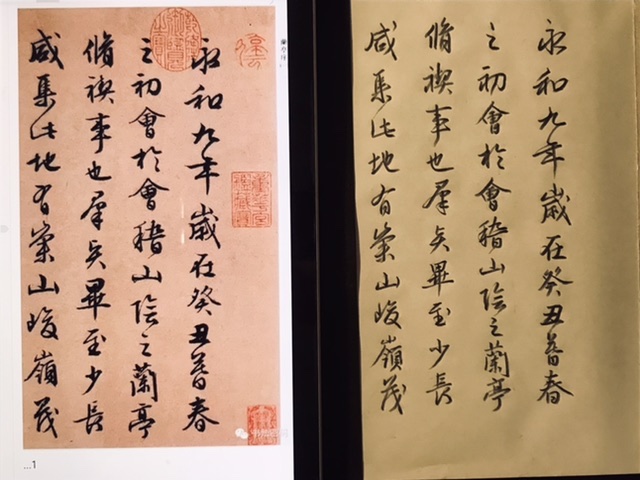 永和九年歲在癸丑暮春
之初會於會稽山陰之蘭亭
脩禊事也羣賢畢至少長
咸集此地有崇山峻嶺茂
...1
永和九年歲在癸丑暮春
之初會於會稽山陰之蘭亭
脩禊事也羣賢畢至少長
咸集此地有崇山峻嶺茂